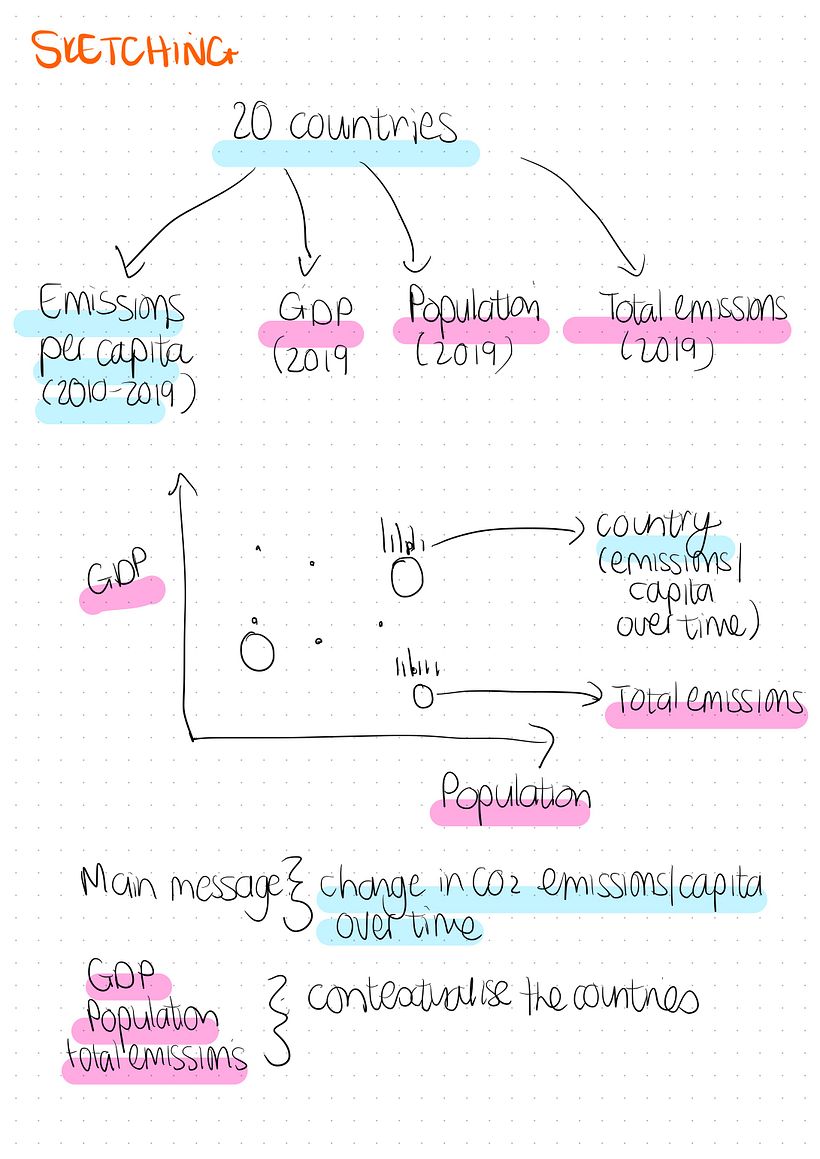 SKETCHING
20 countries
Emissions
per capita
(2010-2019)
GDP
(2019
Population
(2019)
Total emissions
(2019)
GDP
country
(emissions/
capita
over time)
Total emissions
Population
Main message
change in CO2 emissions/capita
over time
GDP
Population
total emissions
contextualise the countries